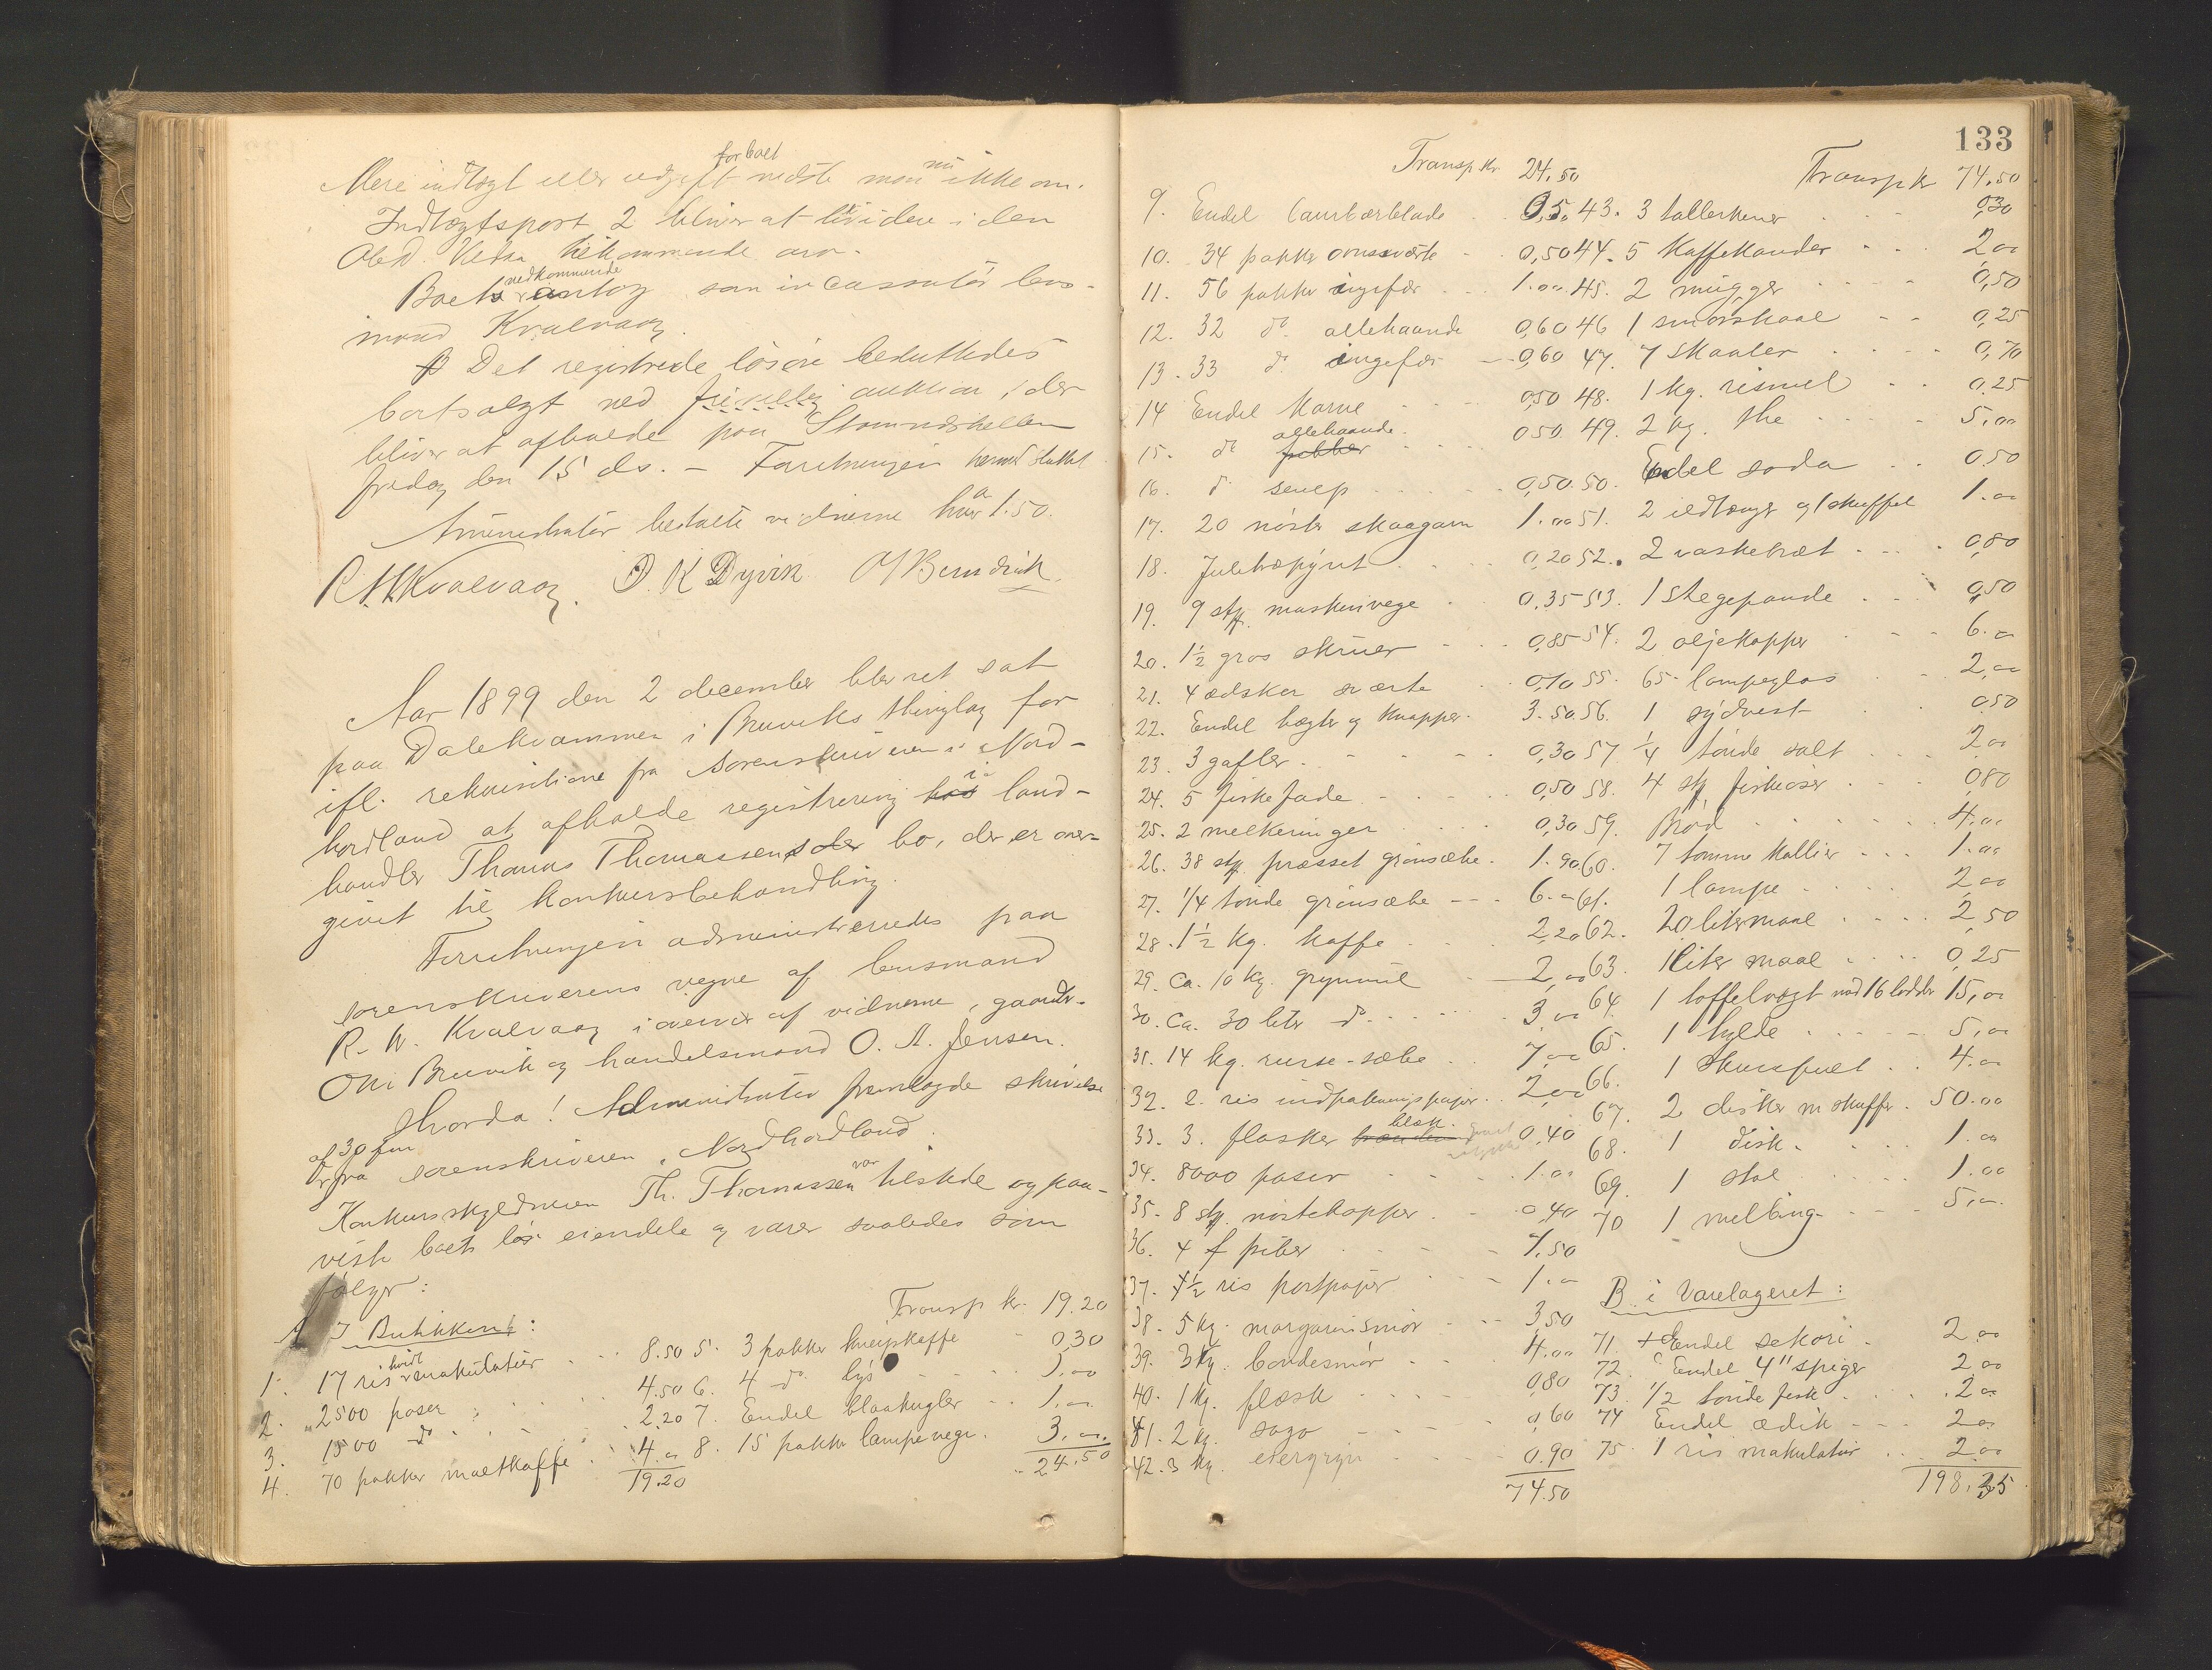 Mere indtægt eller udgift for boet vidste man nu ikke om.
Indtægtspost 2 bliver at
tilkommende arv.
Boets vedkommende antog som incassatör lens-
mand Kvalvaag.
Det registrerede lösöre besluttedes
bortsolgt ved frivillig auktion, der
bliver at afholde paa Stamnæshellen
fredag den 15 ds. - Forretningen hermed sluttet
Administrator betalte vidnerne hver a 1.50.
R. W. Kvalvaag. O. K Dyvik
Aar 1899 den 2 december blev ret sat
paa Dalekvammen i Bruviks thinglag for
ifl. rekvisitione fra sorenskriveren i Nord-
hordland at afholde registrering i land-
handler Thomas Thomassens bo, der er over-
givet til konkursbehandling.
Forretningen administreredes paa
sorenskriverens vegne af lensmand
R. W. Kvalvaag i overvær af vidnerne, gaardbr.
Ole Bruvik og handelsmand O. A. Jensen.
Hvorda! Administrator fremlagde skrivelse
af 30 f.m.
fra sorenskriveren i Nordhordland.
Konkursskyldneren Th. Thomassen var tilstede og paa-
viste boets lös eiendele og varer saaledes som
fölger:
Transp kr. 19.20
A I Butikken:
1. 17 ris hvidt makulatur 8.50
2. 2500 poser 4.50
3. 1500 do 2.20
4. 70 pakker maltkaffe 4.00
19.20
5. 3 pakker kneipkaffe 0,30
6. 4 do. lys 1.00
7. Endel blaakugler 1.00
8. 15 pakker lampevæge 3.00
24.50
133
Transp kr. 24.50
9. Endel laurbærblade 0,50
10. 34 pakker ovnsværte 0,50
11. 56 pakker ingefær 1.00
12. 32 do. allehaande 0,60
13. 33 do. ingefær 0,60
14 Endel Karve 0,50
15. do allehaande 0,50
16. do senep 0,50
17. 20 nöster skaagarn 1.00
18. Juletræpynt 0,20
19. 9 stk. maskinvege 0,35
20. 1½ gros skruer 0,85
21. 4 ædsker sværte 0,70
22. Endel hægter og knapper 3.50
23. 3 gafler 0,30
24. 5 fiskefade 0,50
25. 2 melkeringer 0,30
26. 38 stk. presset grönsæbe 1.90
27. 1/4 tönde grönsæbe 6.00
28. 1½ kg. kaffe 2,20
29. ca. 10 kg. grynmel 2,00
30. ca. 30 liter do 3,00
31. 14 kg. -sæbe 7,00
32. 2 ris indpakningspapir 2,00
33. 3 flasker blæk 0,40
34. 8000 poser 1.00
35. 8 stk. nöstekopper 0,40
36. 4 piber 1,50
37. ½ ris postpapir 1.00
38. 5 kg. margarinsmör 3,50
39. 3 kg. bondesmör 4.00
40. 1 kg. flæsk 0,80
41. 2 kg. sago 0,60
42. 3 kg. ertegryn 0.90
74.50
Transp kr 74.50
43. 3 tallerkener 0,30
44. 5 Kaffekander 2,00
45. 2 mugger 0,50
46 1 smörskaal 0,25
47. 7 skaaler 0,70
48. 1 kg. rismel 0.25
49. 2 kg. the 5,00
50. Endel soda 0.50
51. 2 ildtænger og 1 skuffel 1.00
52. 2 vaskebræt 0,80
53. 1 stegepande 0,50
54. 2 oljekopper 6.00
55. 65 lampeglas 2,00
56. 1 sydvest 0.50
57 1/4 tönde salt 2,00
58. 4 stk 0,80
59. Bröd 4.00
60. 7 tomme 1.00
61. 1 lampe 2,00
62. 20 litermaal 2,50
63. 1 liter maal 0,25
64. 1 taffelvægt med 16 lodder 15,00
65. 1 hylde 5,00
66. 1 4.00
67. 2 diske m skuffer 50.00
68. 1 disk 1.00
69. 1 stol 1.00
70 1 melbinge 5,00
B. i Varelageret:
71. Endel sekori 2,00
72. Endel 4" spiger 2,00
73. 1/2 tönde fisk 2,00
74 Endel ædik 2,00
75. 1 ris makulatur 2,00
198.35